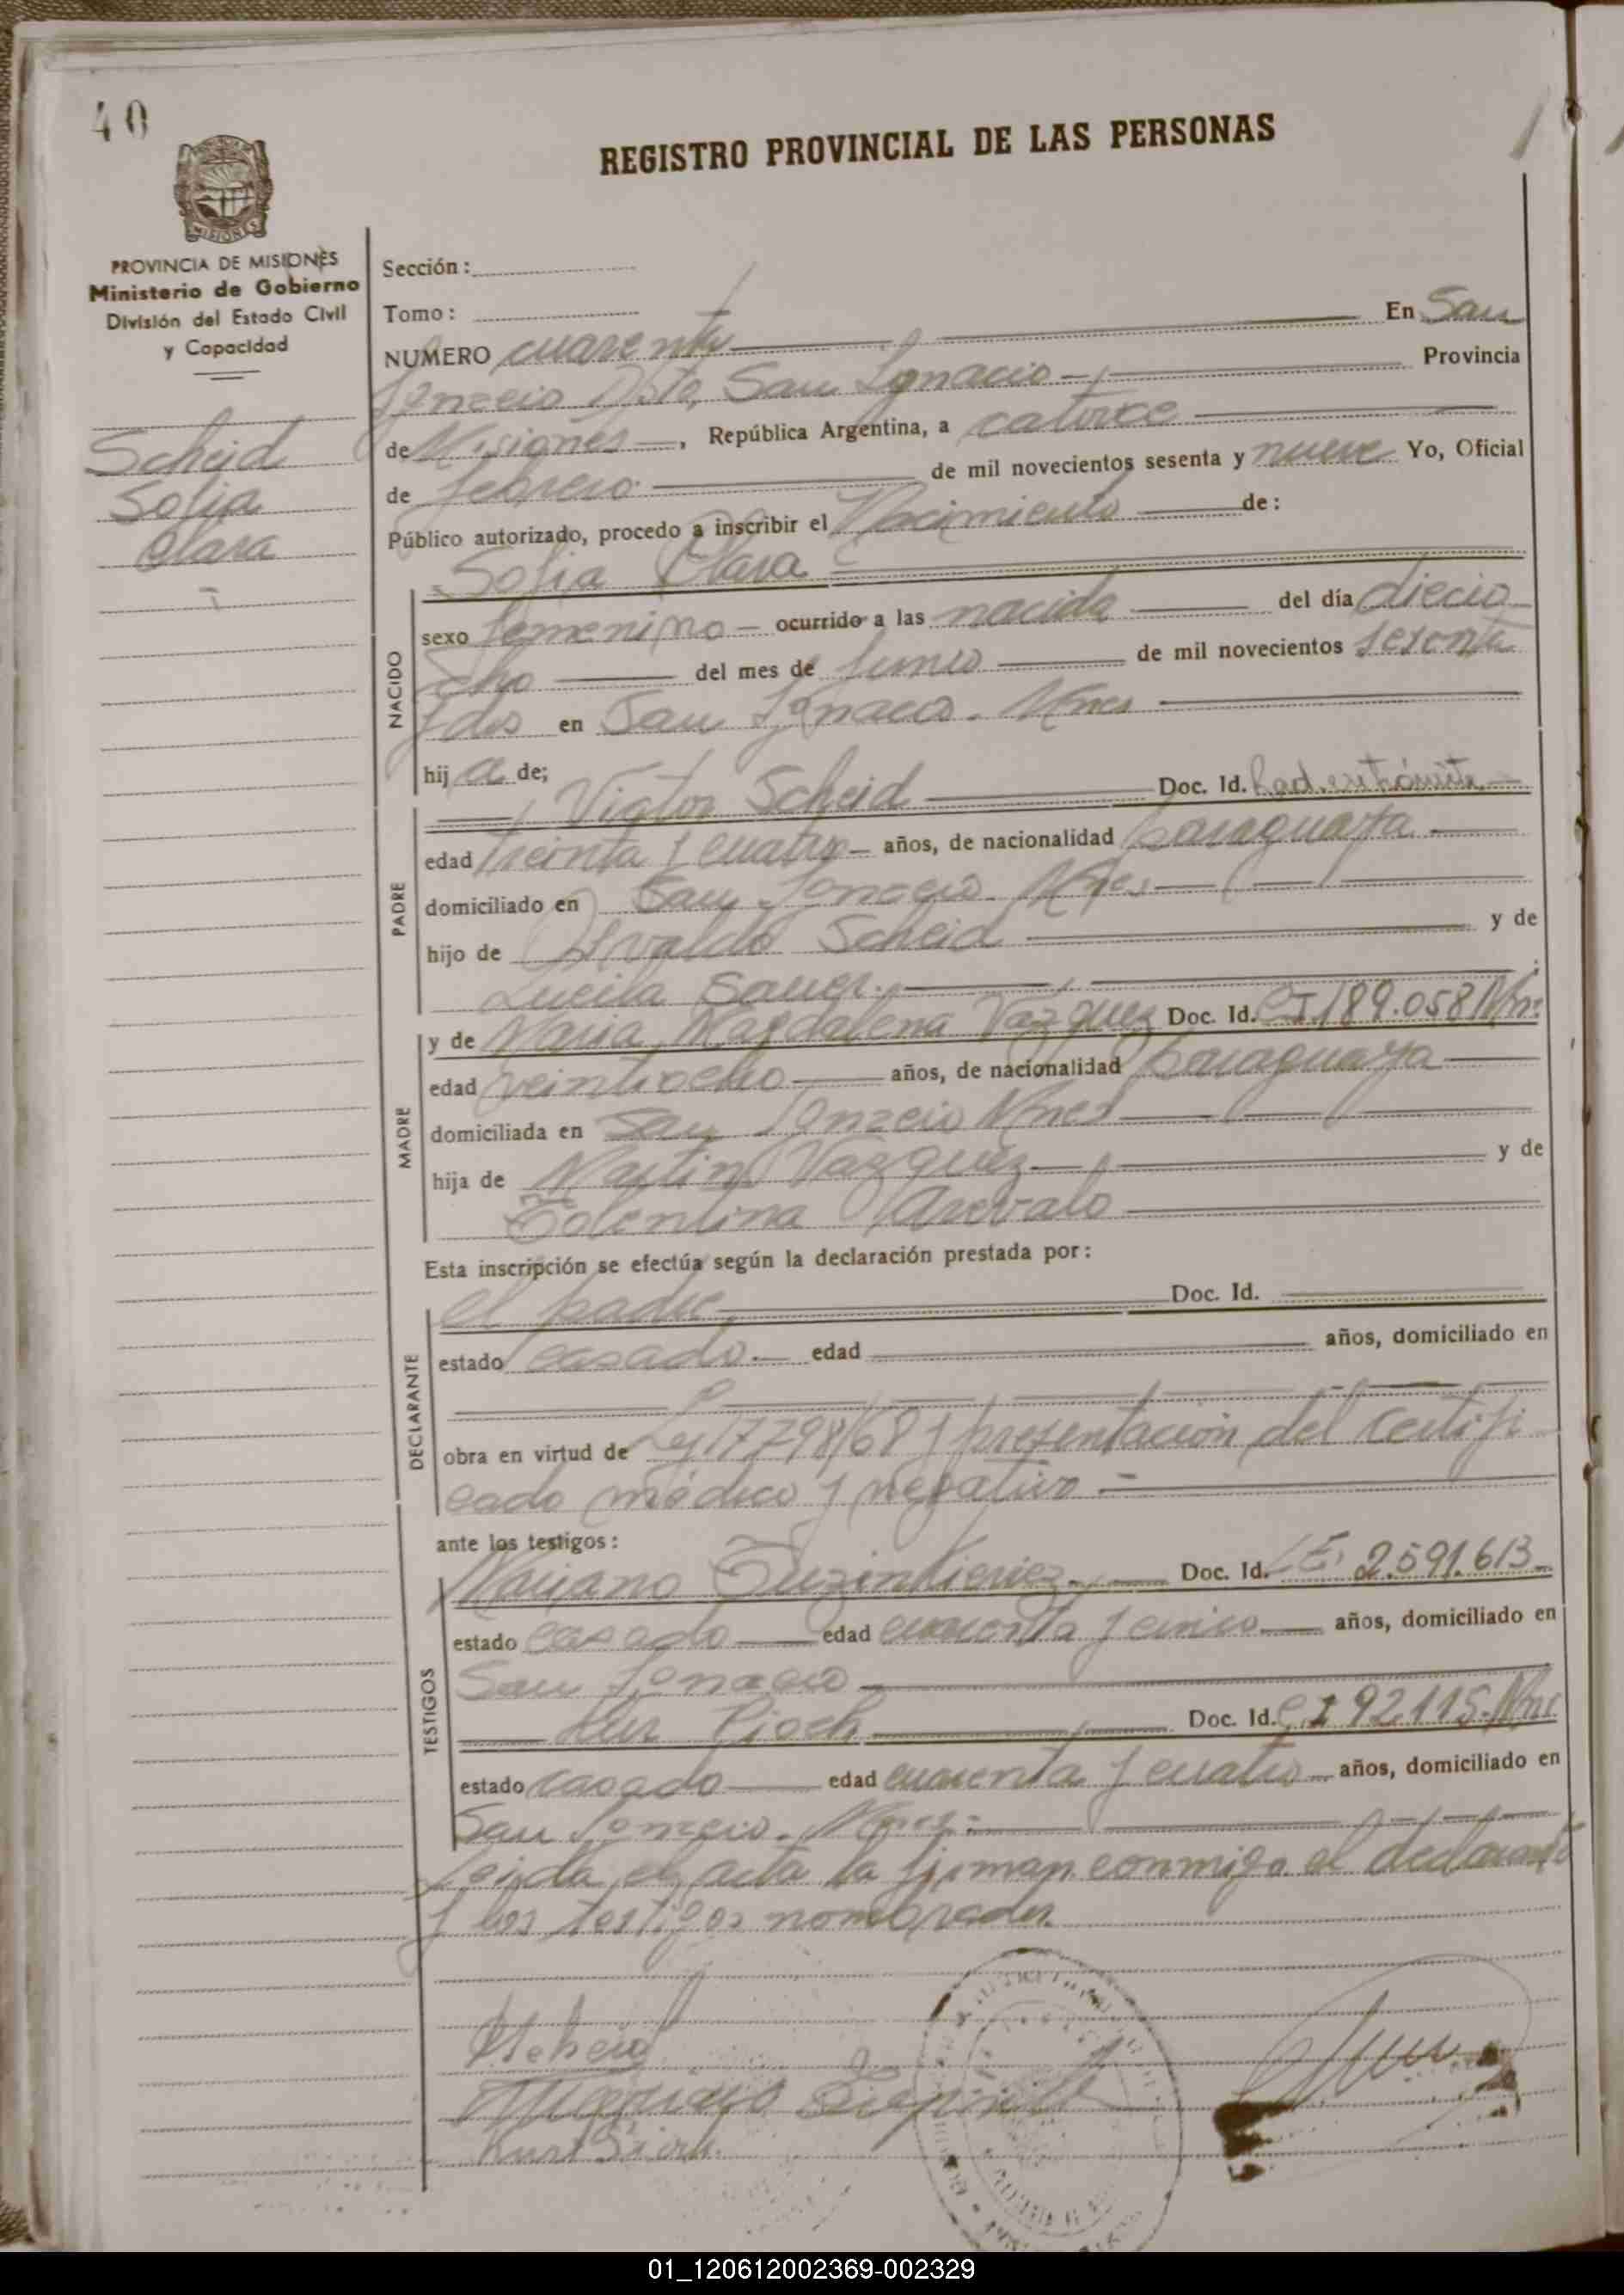 40
REGISTRO PROVINCIAL DE LAS PERSONAS
MISIONES
PROVINCIA DE MISIONES
Ministerio de Gobierno
División del Estado Civil
y Capacidad
Scheid
Sofia
Clara
Sección:
Tomo:
NUMERO cuarenta En San
Ignacio Dpto, San Ignacio Provincia
de Misiones, República Argentina, a catorce
de febrero de mil novecientos sesenta y nueve Yo, Oficial
Público autorizado, procedo a inscribir el Nacimiento de:
Sofia Clara
NACIDO
sexo femenino ocurrido a las nacida del día diecio
cho del mes de Junio de mil novecientos sesenta
y dos en San Ignacio. Mnes
hija de;
PADRE
Victor Scheid Doc. Id. Rad. en trámite
edad treinta y cuatro años, de nacionalidad paraguaya
domiciliado en San Ignacio. Mnes.
hijo de Osvaldo Scheid y de
Lucila Sauer.
MADRE
y de Maria Magdalena Vazquez Doc. Id. CI.189.058 Mnes
edad veintiocho años, de nacionalidad paraguaya
domiciliada en San Ignacio Mnes
hija de Martin Vazquez y de
Tolentina Arevalo
Esta inscripción se efectúa según la declaración prestada por:
DECLARANTE
el padre Doc. Id.
estado casado. edad años, domiciliado en
obra en virtud de Ley 17798/68 y presentación del Certifi
cado médico y negativo
ante los testigos:
TESTIGOS
Mariano Doc. Id. LE. 2.591.613
estado casado edad cuarenta y cinco años, domiciliado en
San Ignacio
Pioch Doc. Id. CI 92.115. Mnes
estado casado edad cuarenta y cuatro años, domiciliado en
San Ignacio. Mnes.
Leida el acta la firman conmigo el declarante
y los testigos nombrados
Scheid
Mariano
Kurt Pioch
01_120612002369-002329